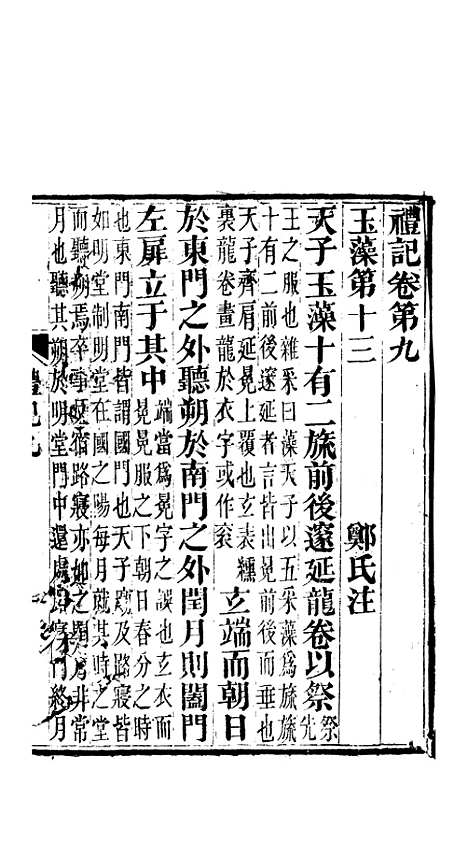 禮記卷第九
玉藻第十三 鄭氏注
天子玉藻十有二旒前後邃延龍卷以祭 祭先
王之服也雜采曰藻天子以五采藻爲旒旒
十有二前後邃延者言皆出冕前後而垂也
天子齊肩延冕上覆也玄表纁
裏龍卷畫龍於衣字或作衮
玄端而朝日
於東門之外聽朔於南門之外閏月則闔門
左扉立于其中
端當爲冕字之誤也玄衣而
冕冕服之下朝日春分之時
也東門南門皆謂國門也天子廟及路寢皆
如明堂制明堂在國之陽每月就其時之堂
而聽朔焉卒事反宿路寢亦如之閏月非常
月也聽其朔於明堂門中還處路寢門終月
禮記九